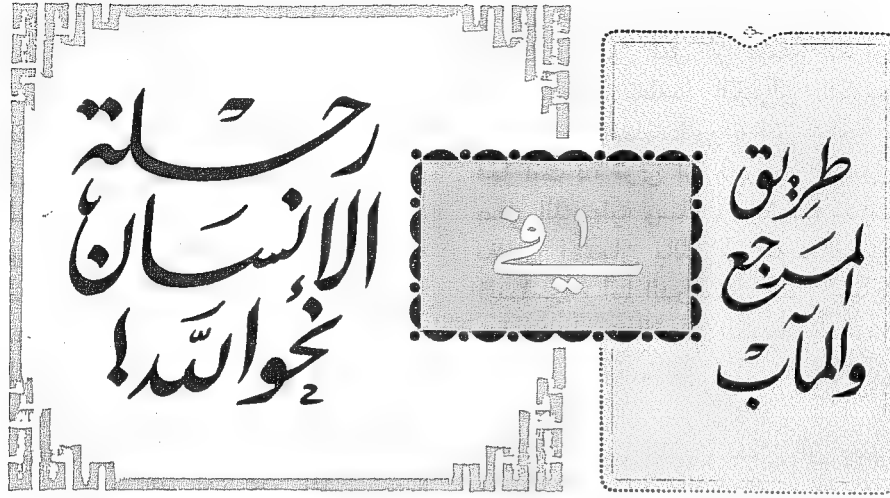 طريق
المرجع
والمآب
في
رحلة
الإنسان
نحو الله !